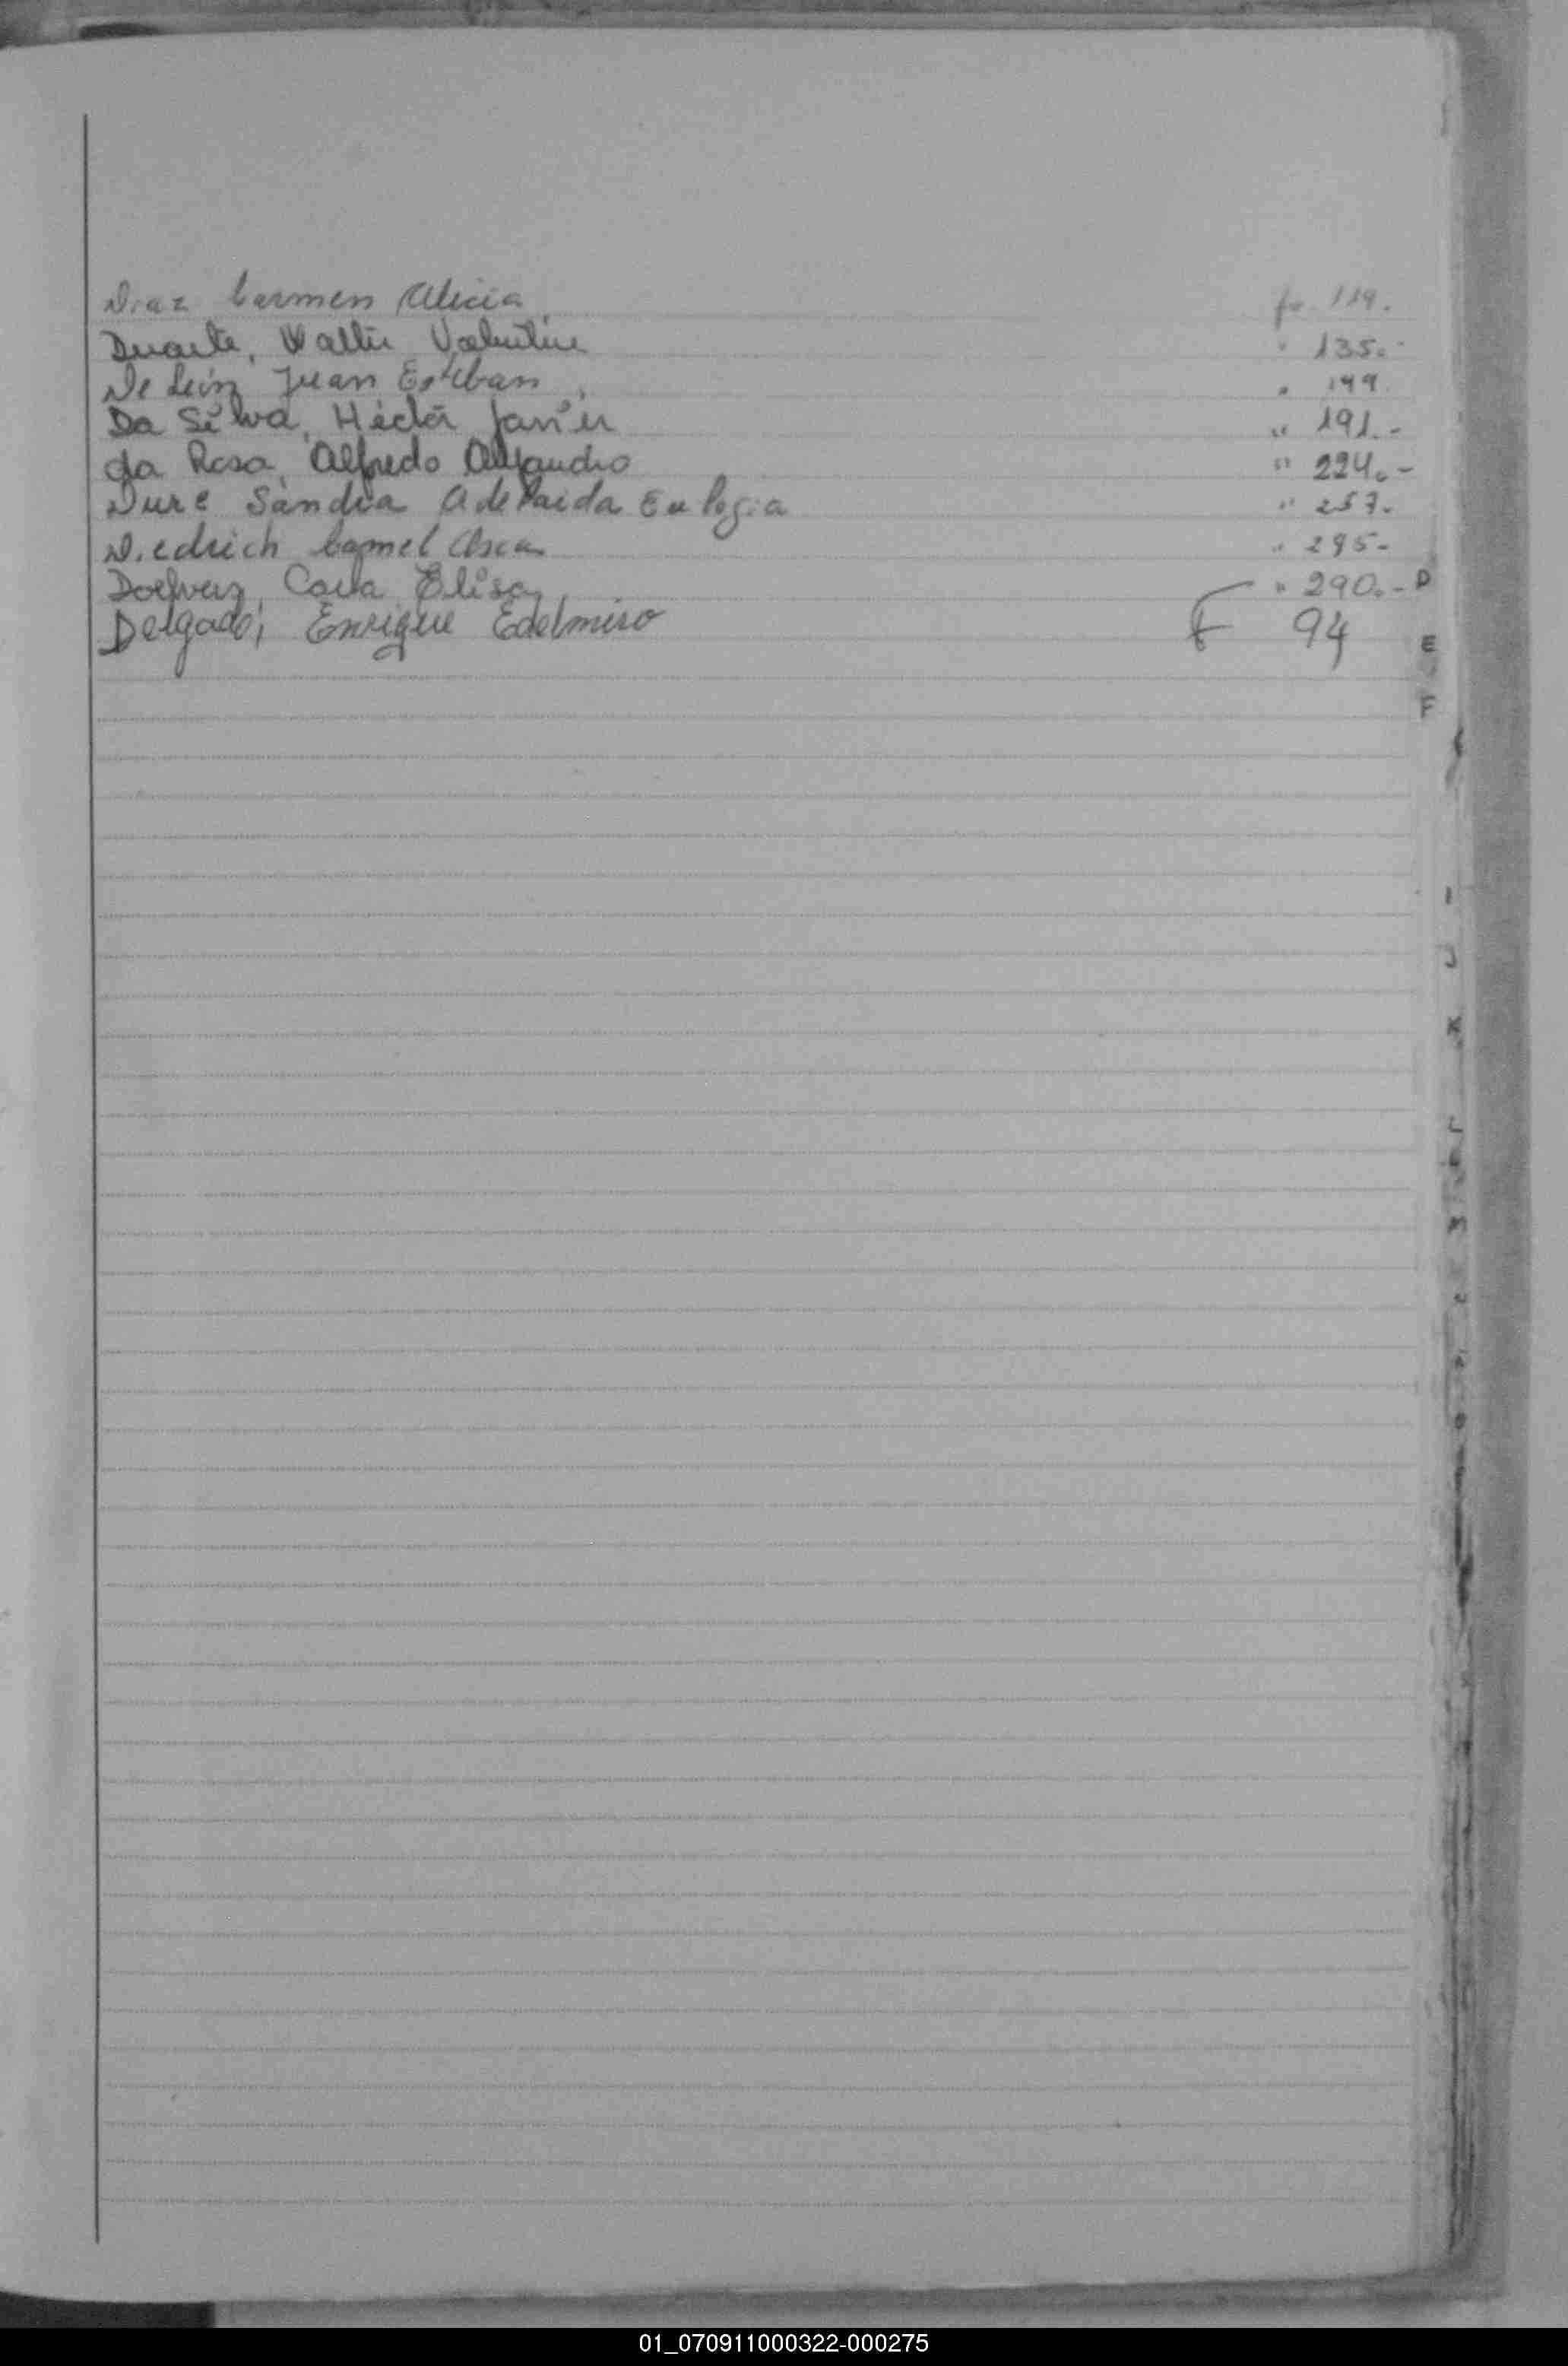 Diaz Carmen Alicia fo 119.
Duarte, Walter Valentin " 135.-
De León Juan Esteban " 149
Da Silva, Héctor Javier " 191.-
da Rosa, Alfredo Alejandro " 224.-
Dure Sandra Adelaida Eulogia " 257.
Diedrich Carmel Oscar " 295-
Carla Elisa " 290.- D
Delgado, Enrique Edelmiro F 94
E
F
I
J
K
01_070911000322-000275